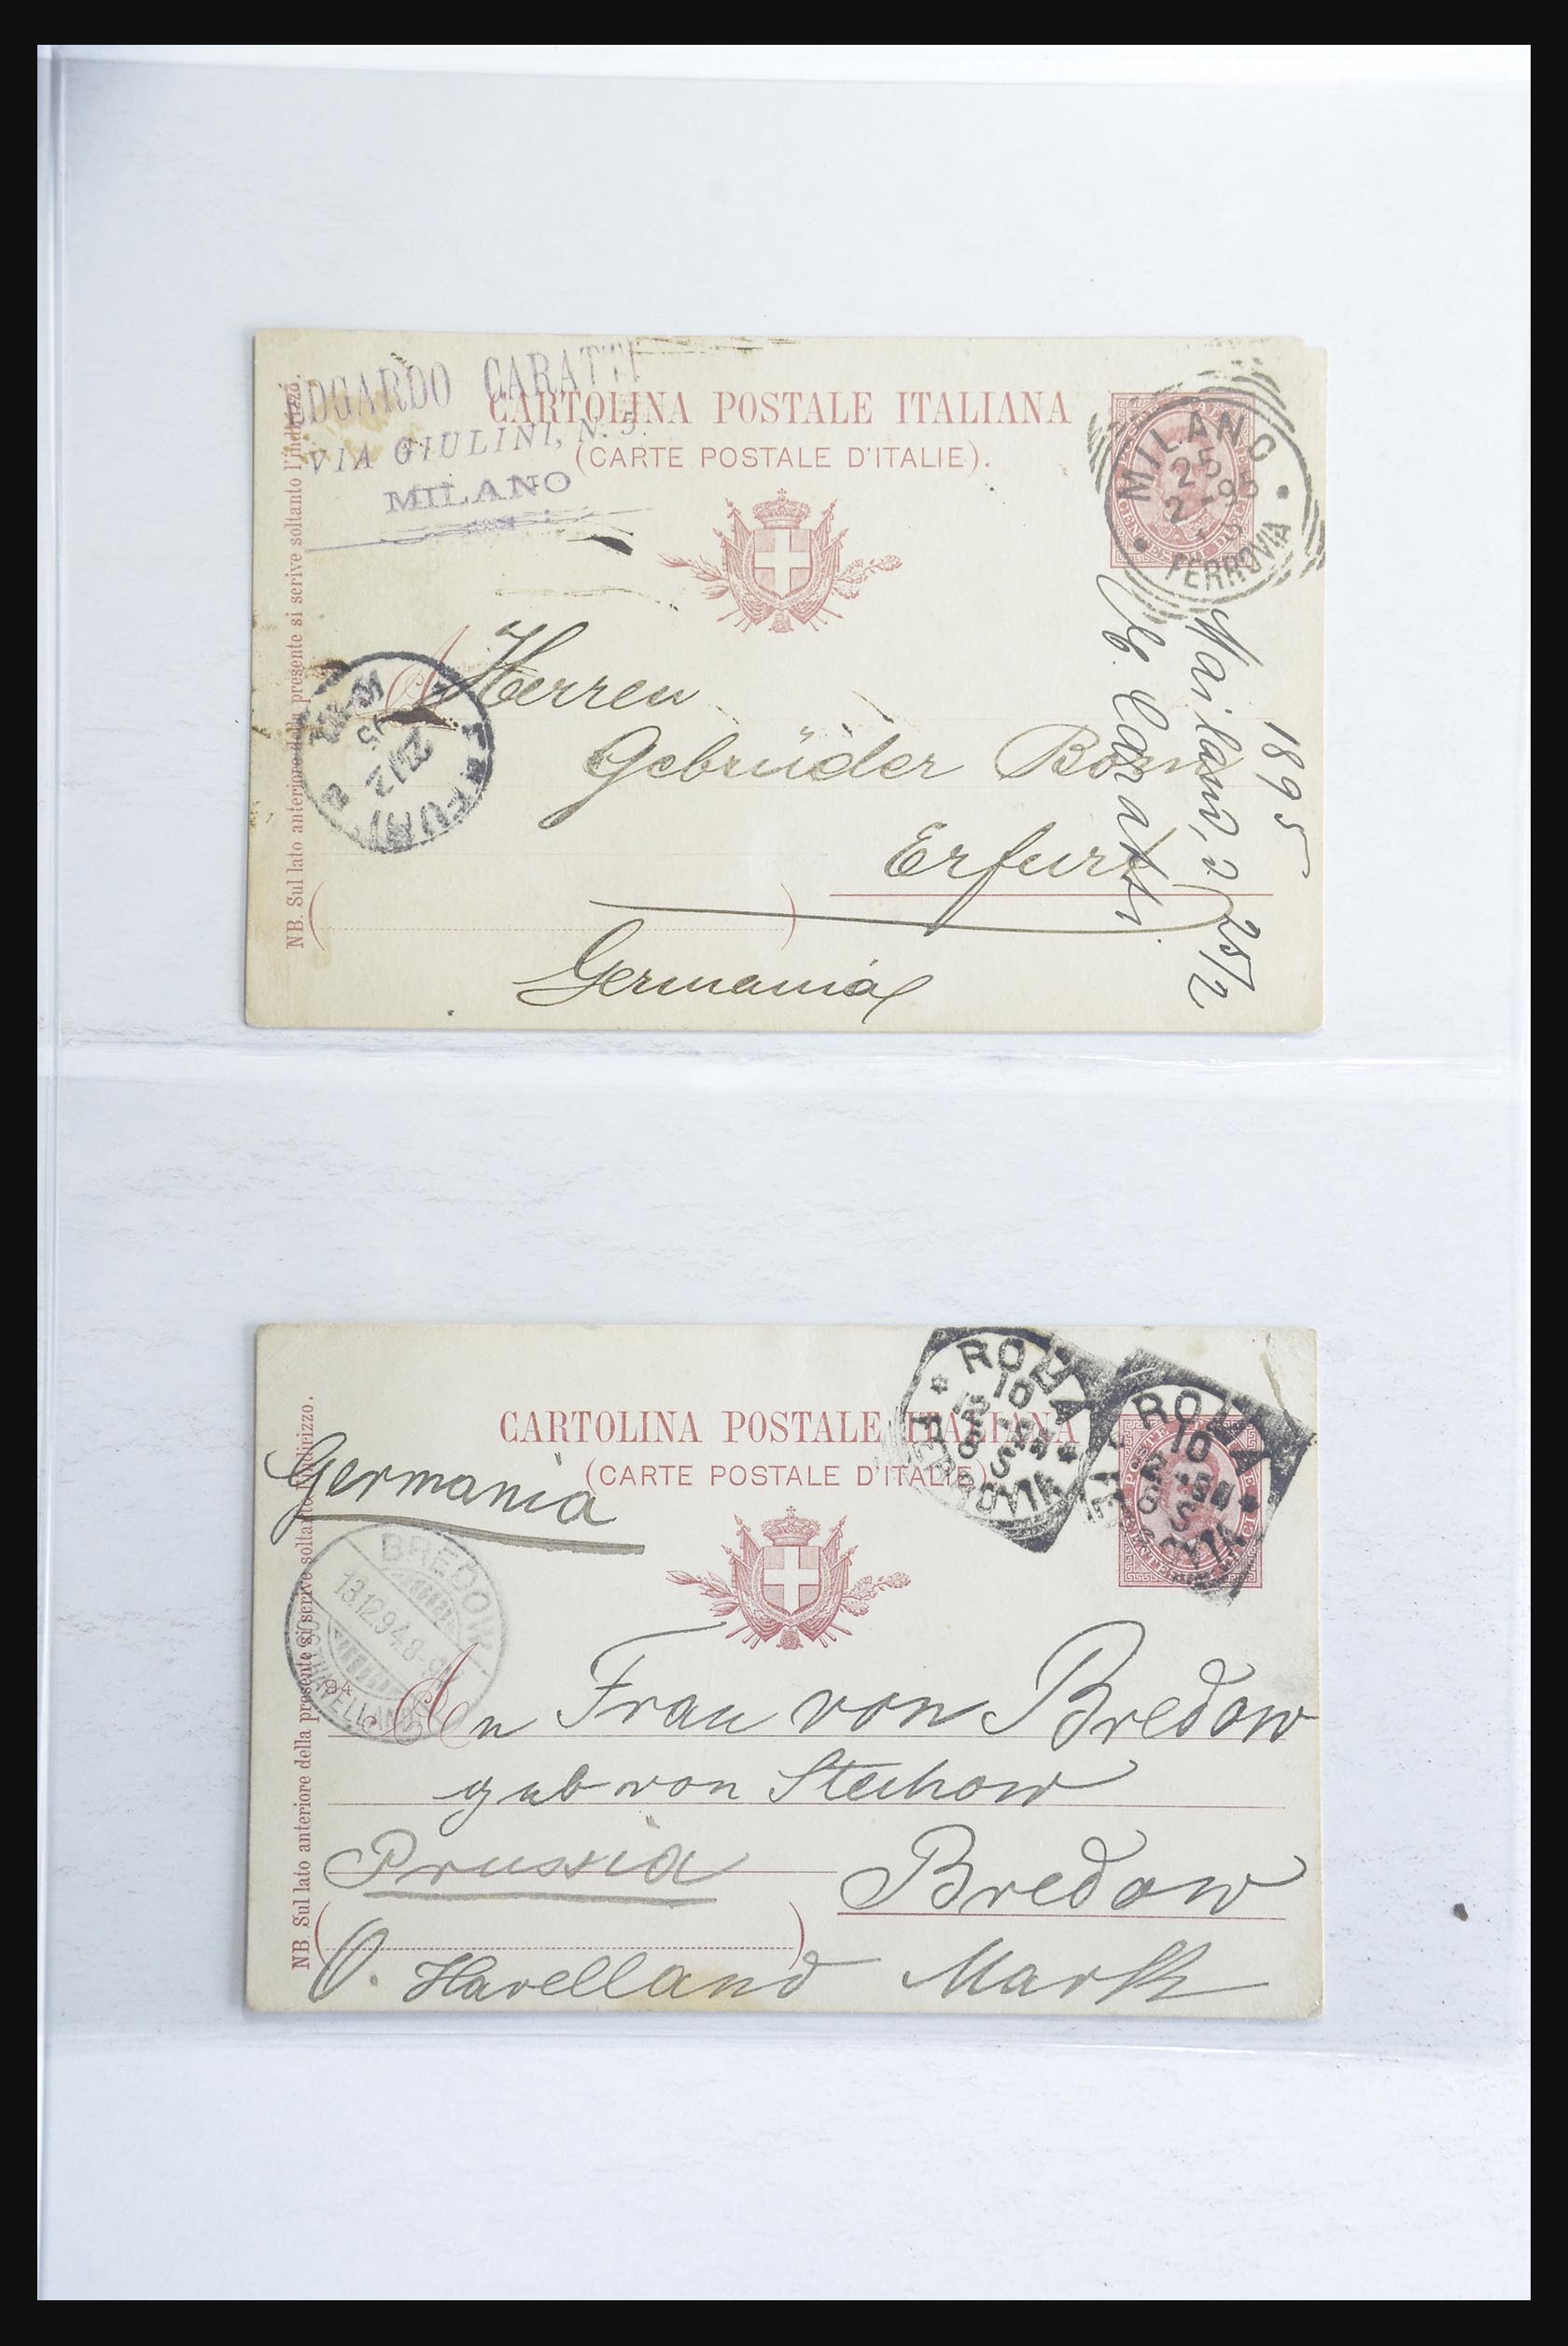 EDGARDO CARATTI
VIA GIULINI, N. 5.
MILANO
CARTOLINA POSTALE ITALIANA
(CARTE POSTALE D'ITALIE).
MILANO
25
2-95
FERROVIA
NB. Sul lato anteriore della presente si scrive soltanto l'indirizzo.
A Herren
Gebrüder Born
Erfurt
Germania
ERFURT
27/2
95
1895
Mailand, 25/2
Caratti
CARTOLINA POSTALE ITALIANA
(CARTE POSTALE D'ITALIE)
ROMA
10
FERROVIA
ROMA
10
Germania
BREDOW
13.12.94.8-9V.
OSTHAVELLAND
NB. Sul lato anteriore della presente si scrive soltanto l'indirizzo.
94
An Frau von Bredow
geb von Stechow
Prussia
Bredow
O. Havelland Mark